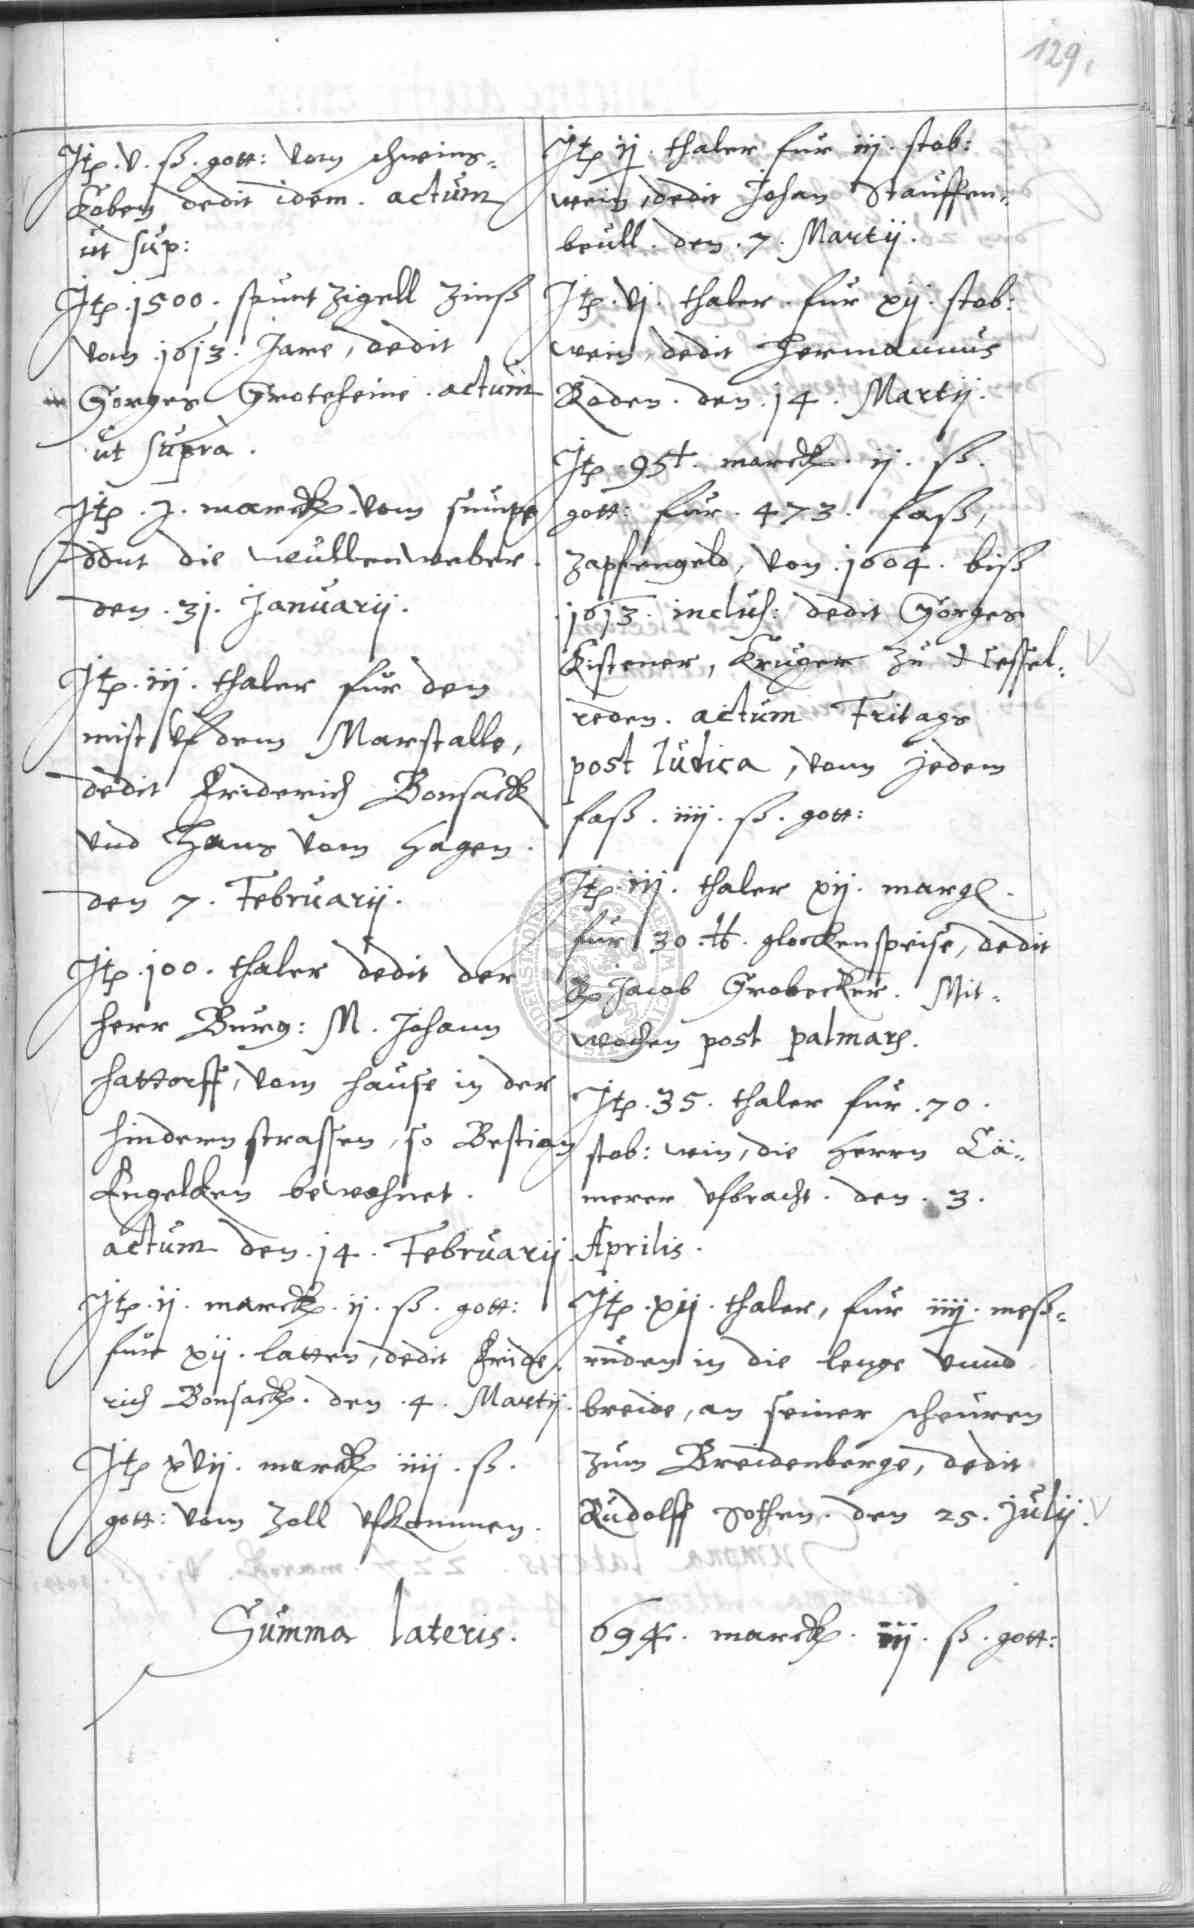 129.
Itp. v. ß. gott: vom schweins-
Koben dedit idem. actum
ut sup:
Itp. 1500. spunt Zigell Zinß
vom 1613. Jare, dedit
Gorges Groteheine. actum
ut supra.
Itp. j. marck. vom
die wullenweber.
den. 31. Januarij.
Itp. iij. thaler fur den
mist uf dem Marstalle,
dedit Friderich Bonsack
und Hans vom Hagen.
den 7. Februarij.
Itp. 100. thaler dedit der
Herr Burg: M. Johann
Hattorff, vom Hause in der
hindern strassen, so Bestian
Engelken bewohnet.
actum den. 14. Februarij
Itp. ij. marck. ij. ß. gott:
fur xij. latten, dedit Fride-
rich Bonsack. den. 4. Martij.
Itp. xvij. marck iiij. ß.
gott: vom Zoll ufkommen.
Itp. thaler fur iij. stob:
wein, dedit Johan Stauffen-
beull. den. 7. Martij.
Itp. vj. thaler. fur xij. stob:
wein, dedit Hermannus
Roden. den. 14. Martij.
Itp. marck. ij. ß.
gott: fur. 473. faß,
Zapfengeld, von. 1604. biß
1613. inclus: dedit Gorges
Kistener, Kruger zu Nessel-
reden. actum Fritags
post Iudica, vonn jedem
faß. iiij. ß. gott:
Itp. iij. thaler xij. margl.
fur 30. ℔. glockenspeise, dedit
Jacob Grobecker. Mit-
wochen post palmar.
Itp. 35. thaler fur. 70.
stob: wein, die Herrn Cä-
merer ufbracht. den. 3.
Aprilis.
Itp. xij. thaler, fur meß-
ruden in die lenge unnd
breide, an seiner scheuren
zum Breidenberge, dedit
Rudolff Sothen. den 25. Julij.
Summa lateris. 694. marck. iij. ß. gott: